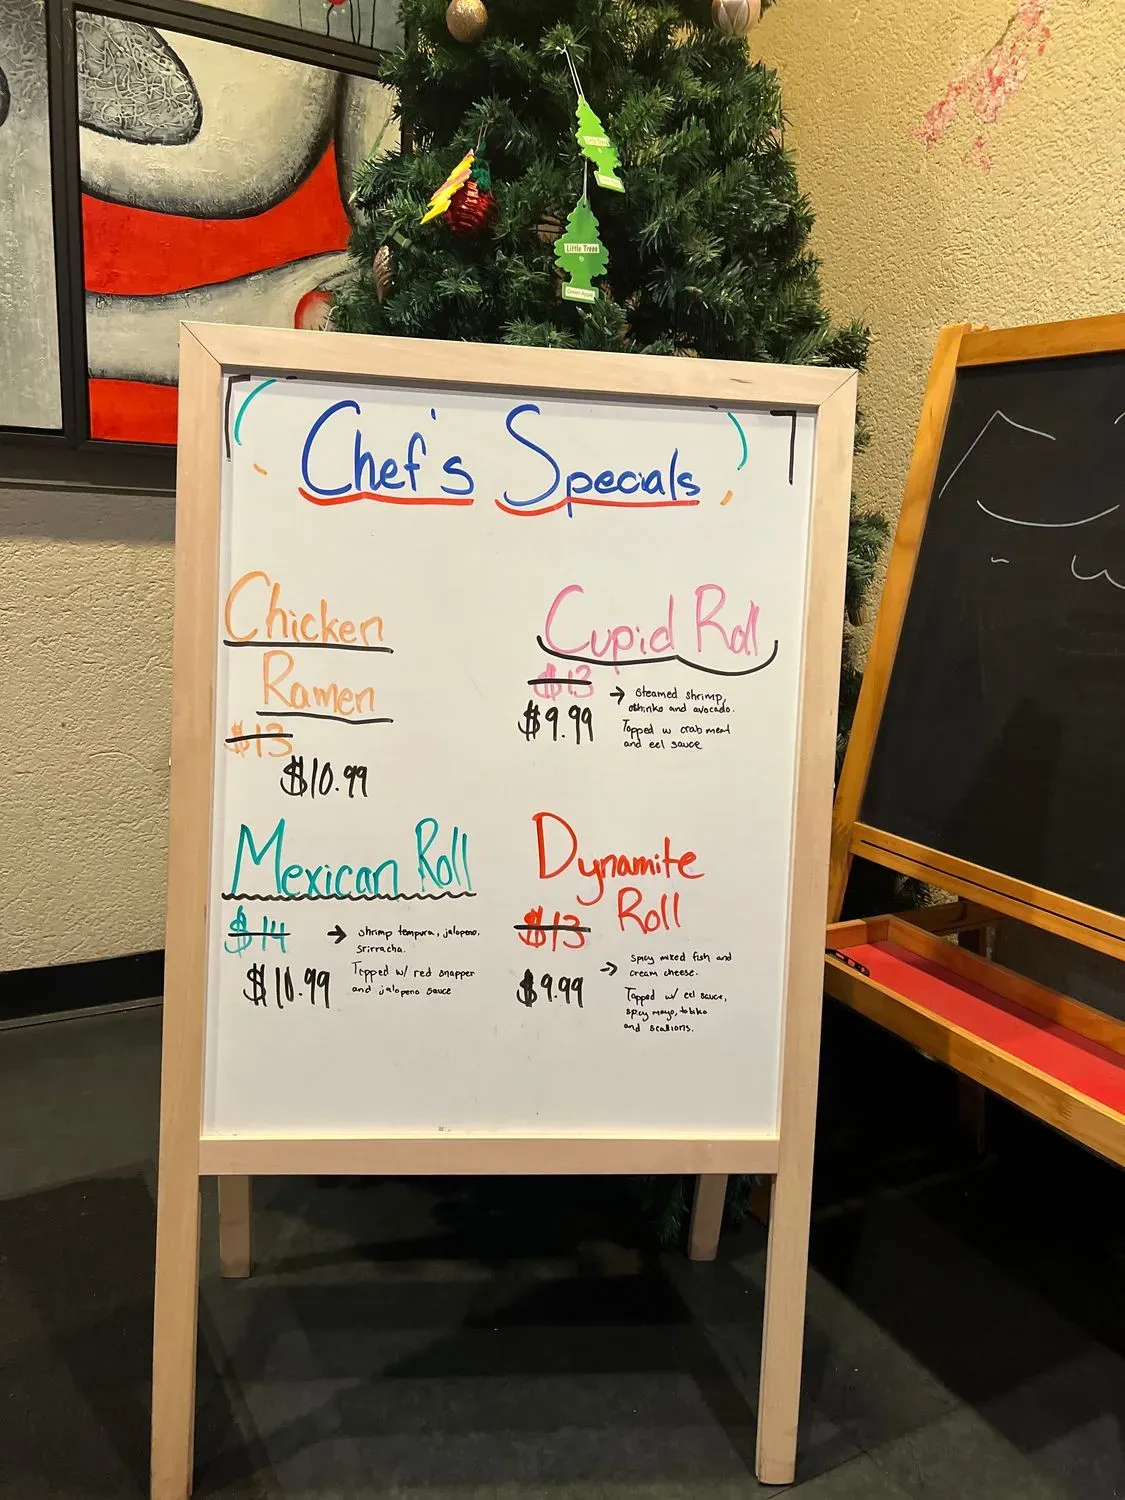 Little Trees
Little Trees
Green Apple
Chef's Specials
Chicken
Ramen
$13
$10.99
Cupid Roll
$13
$9.99
→ Steamed shrimp,
oshinko and avocado.
Topped w crab meat
and eel sauce
Mexican Roll
$14
$10.99
→ shrimp tempura, jalapeno,
srirracha.
Topped w/ red snapper
and jalapeno sauce
Dynamite
Roll
$13
$9.99
→ spicy mixed fish and
cream cheese.
Topped w/ eel sauce,
spicy mayo, tobiko
and scallions.